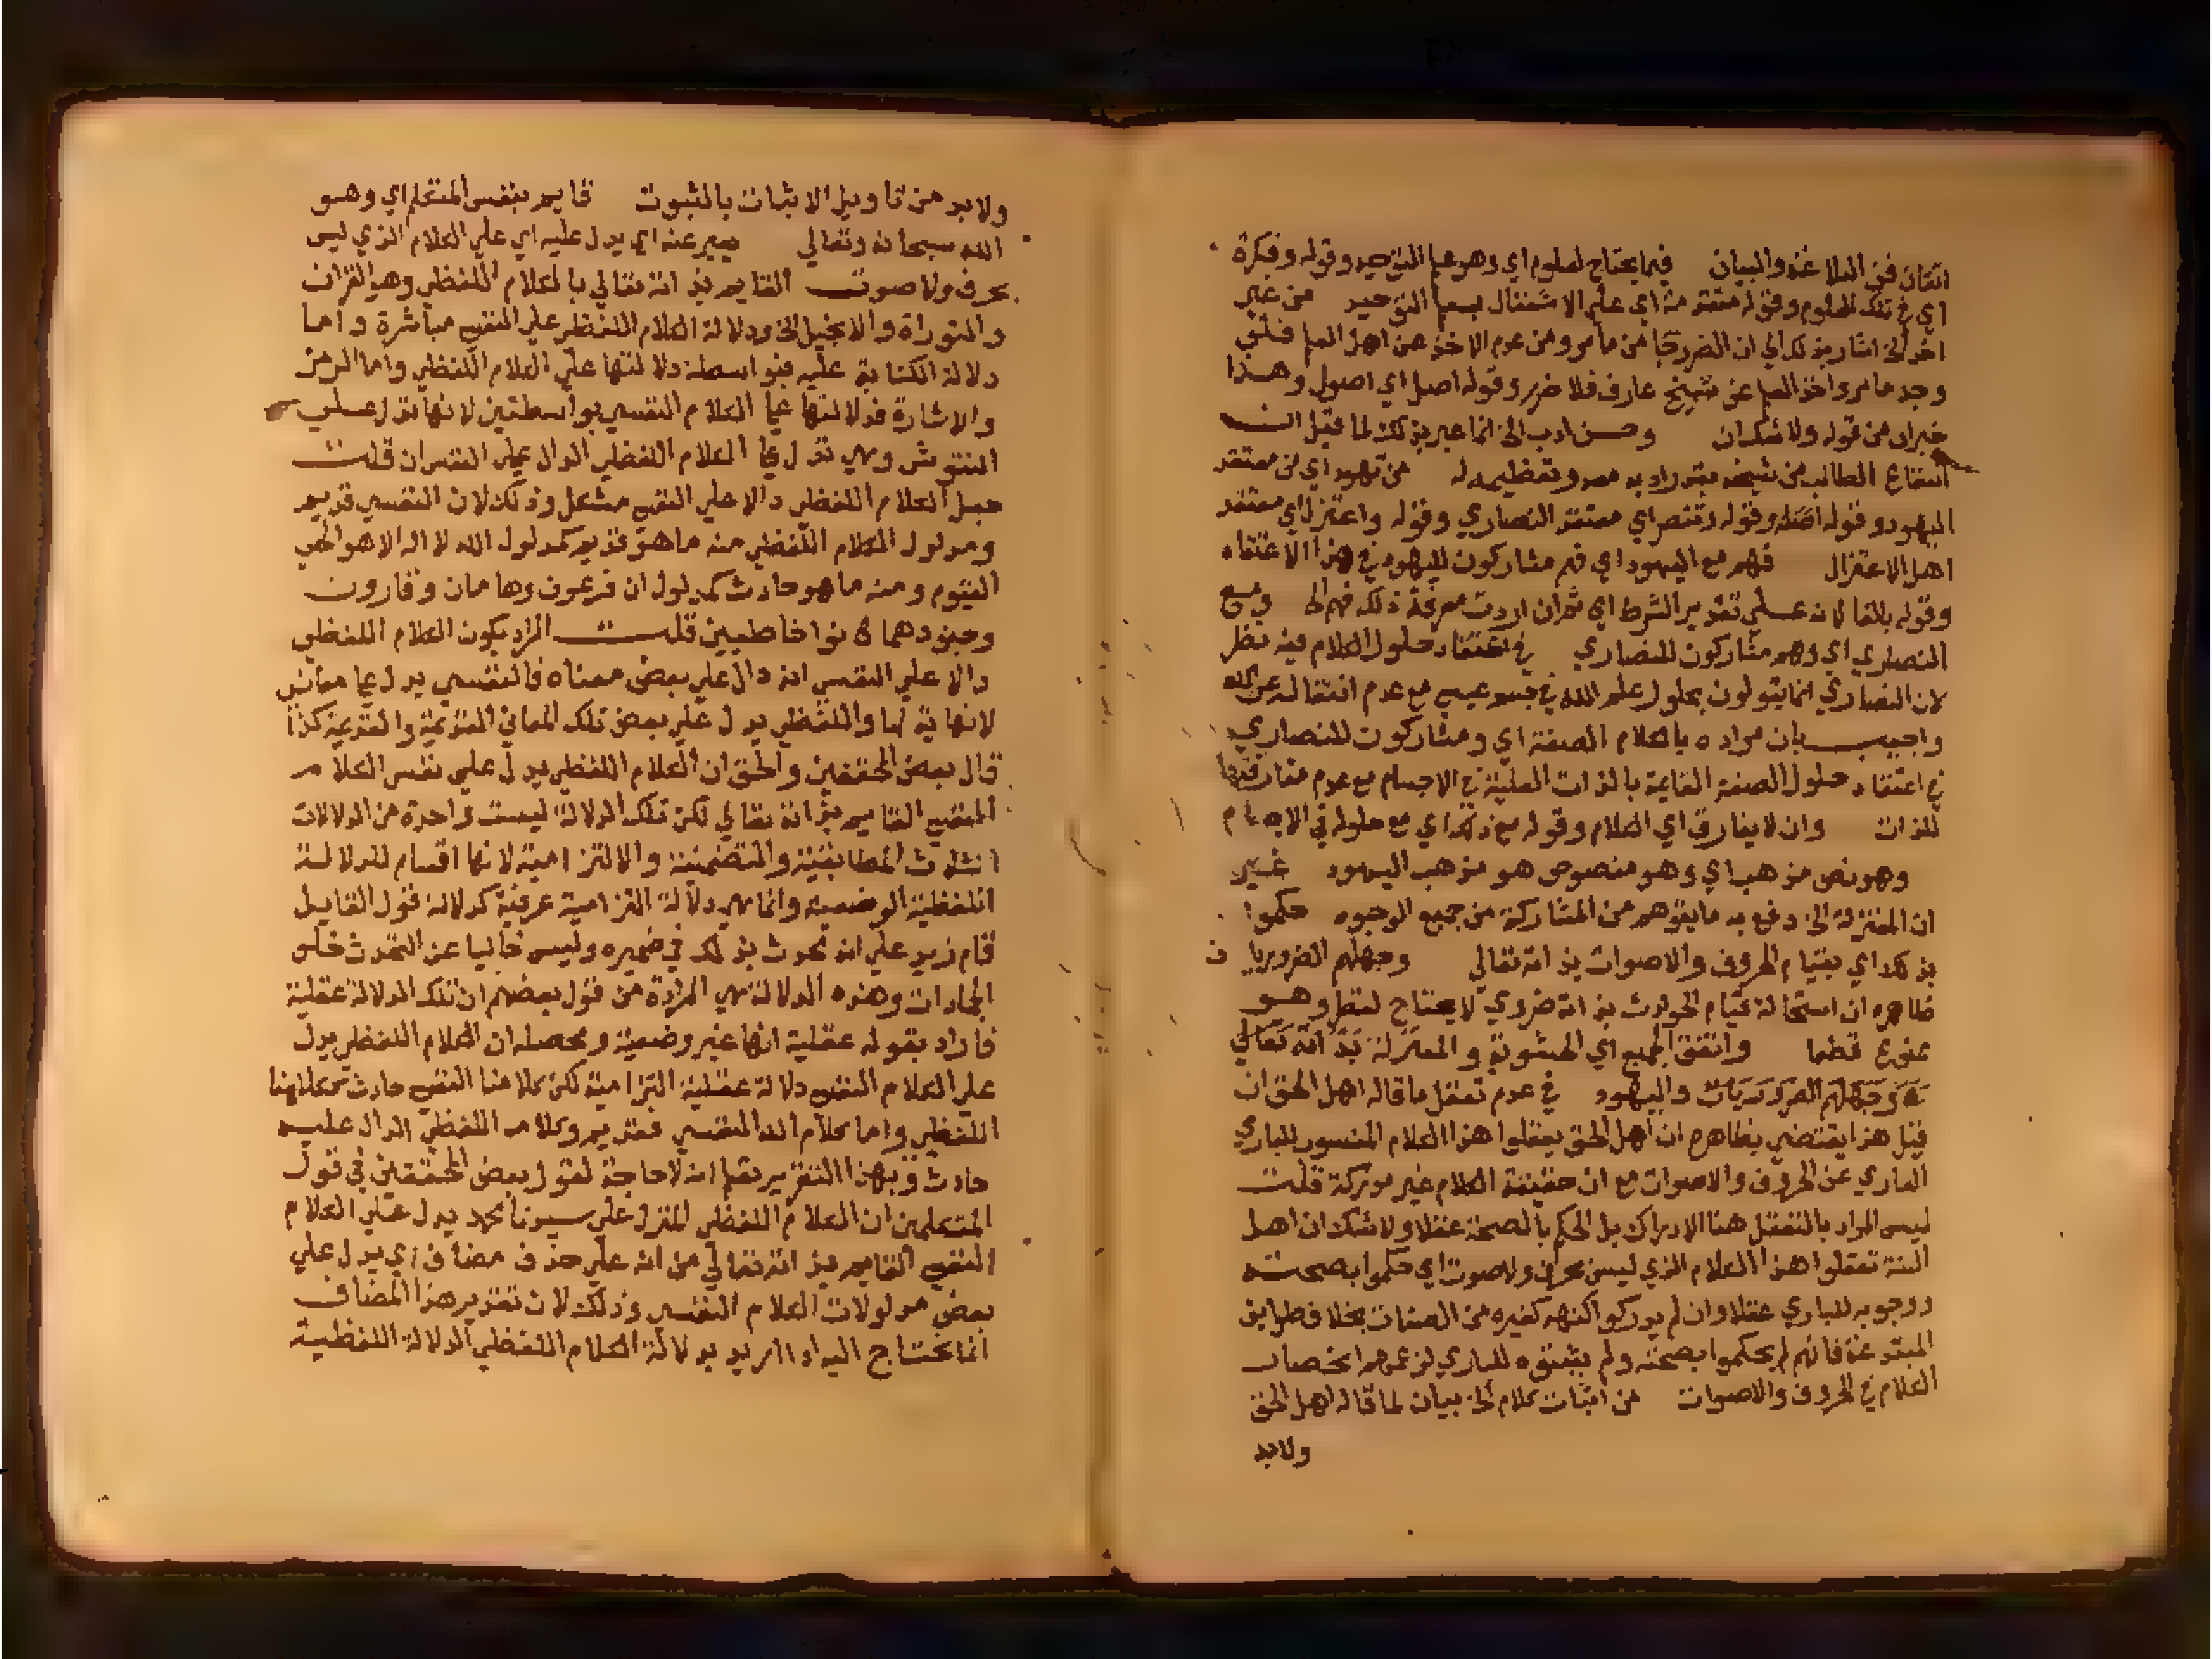 اتقان فن البلاغة والبيان فيما يحتاج لعلوم اي وهو علم التوحيد وقوله وفكرة
اي في تلك العلوم وقوله منة اي علي الاشتغال بعلم التوحيد من غير
اخذ الخ اشار بذلك الي ان الضرر جا من مامر ومن عدم الاخذ عن اهل العلم فلو
وجد مامر واخذ العلم عن شيخ عارف فلا ضرر وقوله اصل اي اصول وهذا
خبر ان من قوله ولا شك ان وحسن ادب الخ انما عبر بذلك لما قيل ان
انتفاع الطالب من شيخه بقدر ادبه معه وتعظيمه له من تهود اي من معتقد
اليهود وقوله اصله وقوله وتنصر اي معتقد النصاري وقوله واعتزل اي معتقد
اهل الاعتزال فهم مع اليهود اي فهم مشاركون لليهود في هذا الاعتقاد
وقوله بالفا لانه علي تقدير الشرط اي ثم ان اردت معرفة ذلك فهم الخ ومع
النصاري اي وهو مشاركون للنصاري في اعتقاد حلول الكلام فيه نظر
لان النصاري انما يقولون بحلول علم الله في جسم عيسي مع عدم انتقاله عن الله
واجيب بان مراده بالكلام الصفة اي ومشاركون للنصاري
في اعتقاد حلول الصفة القايمة بالذات العلية في الاجسام مع عدم مفارقتها
للذات وان لا يفارق اي الكلام وقوله مع ذلك اي مع حلوله في الاجسام
وهو نص مذهب اي وهو منصوص هو مذهب اليهود غير
ان المعتزلة الخ دفع به ما يتوهم من المشاركة من جميع الوجوه حكموا
بذلك اي بقيام الحروف والاصوات بذاته تعالي وجهلهم الضروريات
ظاهره ان استحالة قيام الحوادث بذاته ضروري لا يحتاج لنظر وهو
ممنوع قطعا واتفق الجميع اي الحشوية والمعتزلة بذاته تعالي
وجهلهم الضروريات واليهود في عدم تعقل ما قاله اهل الحق ان
قيل هذا يقتضي بظاهره ان اهل الحق يعقلوا هذا الكلام المنسوب للباري
العاري عن الحروف والاصوات مع ان حقيقة الكلام غير مدركة قلت
ليس المراد بالتعقل هنا الادراك بل الحكم بالصحة عقلا ولا شك ان اهل
السنة تعقلوا هذا الكلام الذي ليس بحرف ولا صوت اي حكموا بصحته
ووجوبه للباري عقلا وان لم يدركوا كنهه كغيره من الصفات بخلاف طوايف
المبتدعة فانهم لم يحكموا بصحته ولم يثبتوه للباري لزعمهم انحصار
الكلام في الحروف والاصوات من اثبات كلام الخ بيان لما قاله اهل الحق
ولابد
ولابد من تاويل الاثبات بالثبوت قايم بنفس المتكلم اي وهو
الله سبحانه وتعالي يعبر عنه اي يدل عليه اي علي الكلام الذي ليس
بحرف ولا صوت القايم بذاته تعالي بالكلام اللفظي وهو القران
والتوراة والانجيل الخ ودلالة الكلام اللفظي علي النفسي مباشرة واما
دلالة الكتابة عليه فبواسطة دلالتها علي الكلام اللفظي واما الرمز
والاشارة فدلالتها علي الكلام النفسي بواسطتين لانها تدل علي
النقوش وهي تدل علي الكلام اللفظي الدال علي النفس ان قلت
جعل الكلام اللفظي دالا علي النفسي مشكل وذلك لان النفسي قديم
ومدلول الكلام اللفظي منه ما هو قديم كمدلول الله لا اله الا هو الحي
القيوم ومنه ما هو حادث كمدلول ان فرعون وهامان وقارون
وجنودهما كانوا خاطيين قلت المراد بكون الكلام اللفظي
دالا علي النفسي انه دال علي بعض معناه فالنفسي يدل علي معاني
لانهاية لها واللفظي يدل علي بعض تلك المعاني القديمة والقديمة كذا
قال بعض المحققين والحق ان الكلام اللفظي يدل علي نفس الكلام
النفسي القايم بذاته تعالي لكن تلك الدلالة ليست واحدة من الدلالات
الثلاث المطابقية والتضمنية والالتزامية لانها اقسام للدلالة
اللفظية الوضعية وانما هي دلالة التزامية عرفية كدلالة قول القايل
قام زيد علي انه تحدث بذلك في ضميره وليس خاليا عن التحدث خلو
الجمادات وهذه الدلالة هي المرادة من قول بعضهم ان تلك الدلالة عقلية
فاراد بقوله عقلية انها غير وضعية ومحصله ان الكلام اللفظي يدل
علي الكلام النفسي دلالة عقلية التزامية لكن كلامنا النفسي حادث ككلامنا
اللفظي واما كلام الله النفسي فقديم وكلامه اللفظي الدال عليه
حادث وبهذا التقرير تعلم انه لا حاجة لقول بعض المحققين في قول
المتكلمين ان الكلام اللفظي المنزل علي سيدنا محمد يدل علي الكلام
النفسي القايم بذاته تعالي من انه علي حذف مضاف اي يدل علي
بعض مدلولات الكلام النفسي وذلك لان تقدير هذا المضاف
انما يحتاج اليه اذا اريد بدلالة الكلام اللفظي الدلالة اللفظية